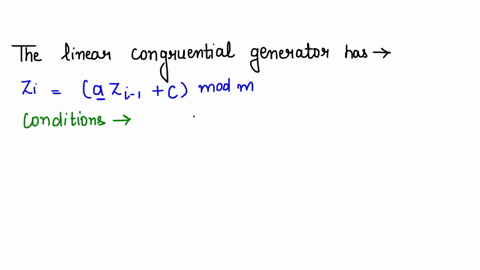 The linear congruential generator has →
Zi = (a Zi-1 + C) mod m
Conditions →